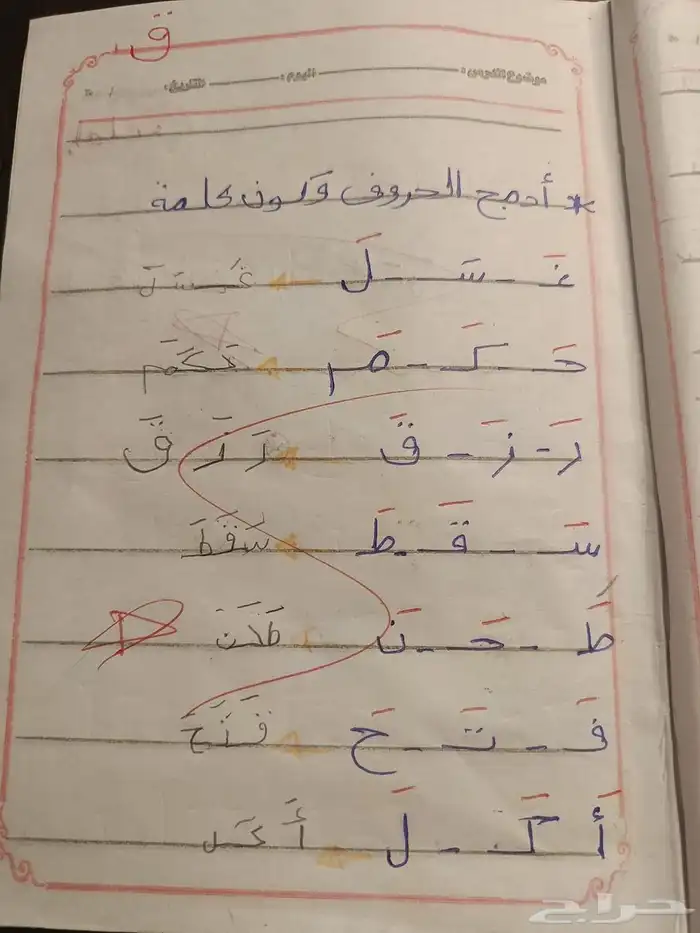 ق
موضوع الدرس : اليوم : التاريخ : / /
* أدمج الحروف وكون كلمة
غَـ - سَـ - لَ ← غَسَلَ
حَـ - كَـ - مَ ← حَكَمَ
رَ - زَ - قَ ← رَزَقَ
سَـ - ـقَـ - ـطَ ← سَقَطَ
طَـ - ـحَـ - ـنَ ← طَحَنَ
فَـ - ـتَـ - ـحَ ← فَتَحَ
أَ - كَـ - لَ ← أَكَل
حراج